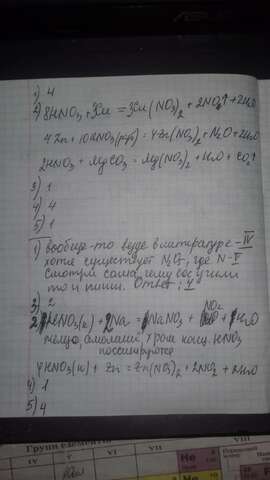 1) 4
2) 8HNO3 + 3Cu = 3Cu(NO3)2 + 2NO2↑ + 2H2O
4Zn + 10HNO3(разб) = 4Zn(NO3)2 + N2O + 2H2O
2HNO3 + MgCO3 = Mg(NO3)2 + H2O + CO2↑
3) 1
4) 4
5) 1
1) вообще-то везде в литературе - IV
хотя существует N2O5, где N - V
Смотри сама, чему вас учили
то и пиши. Ответ: 4
3) 2
HNO3(к) + Na = NaNO3 + NO2 + H2O
железо, алюминий, хром конц. HNO3
пассивируются
4HNO3(к) + Zn = Zn(NO3)2 + 2NO2 + 2H2O
4) 1
5) 4
Групп элементов
IV V VI VII VIII
Ne